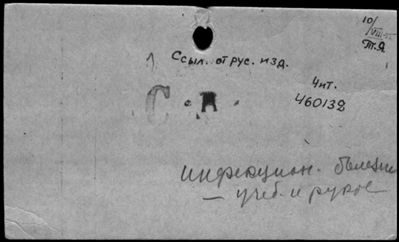 10/
VIII-
Т.Я
1 Ссыл. от рус. изд.
Чит.
460132
С. Л.
инфекцион. болезни
— учеб. и руков